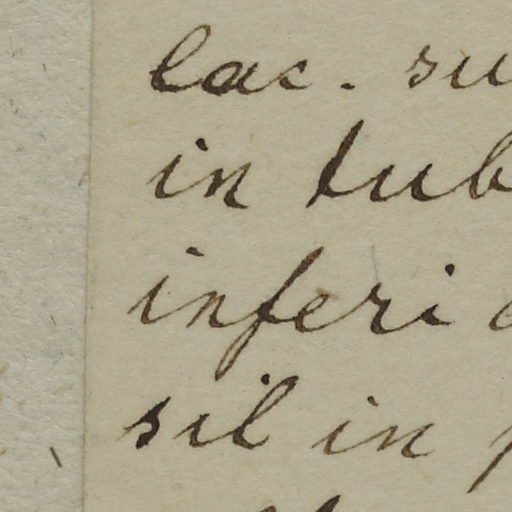 lac. su
in tub
inferi
sil in